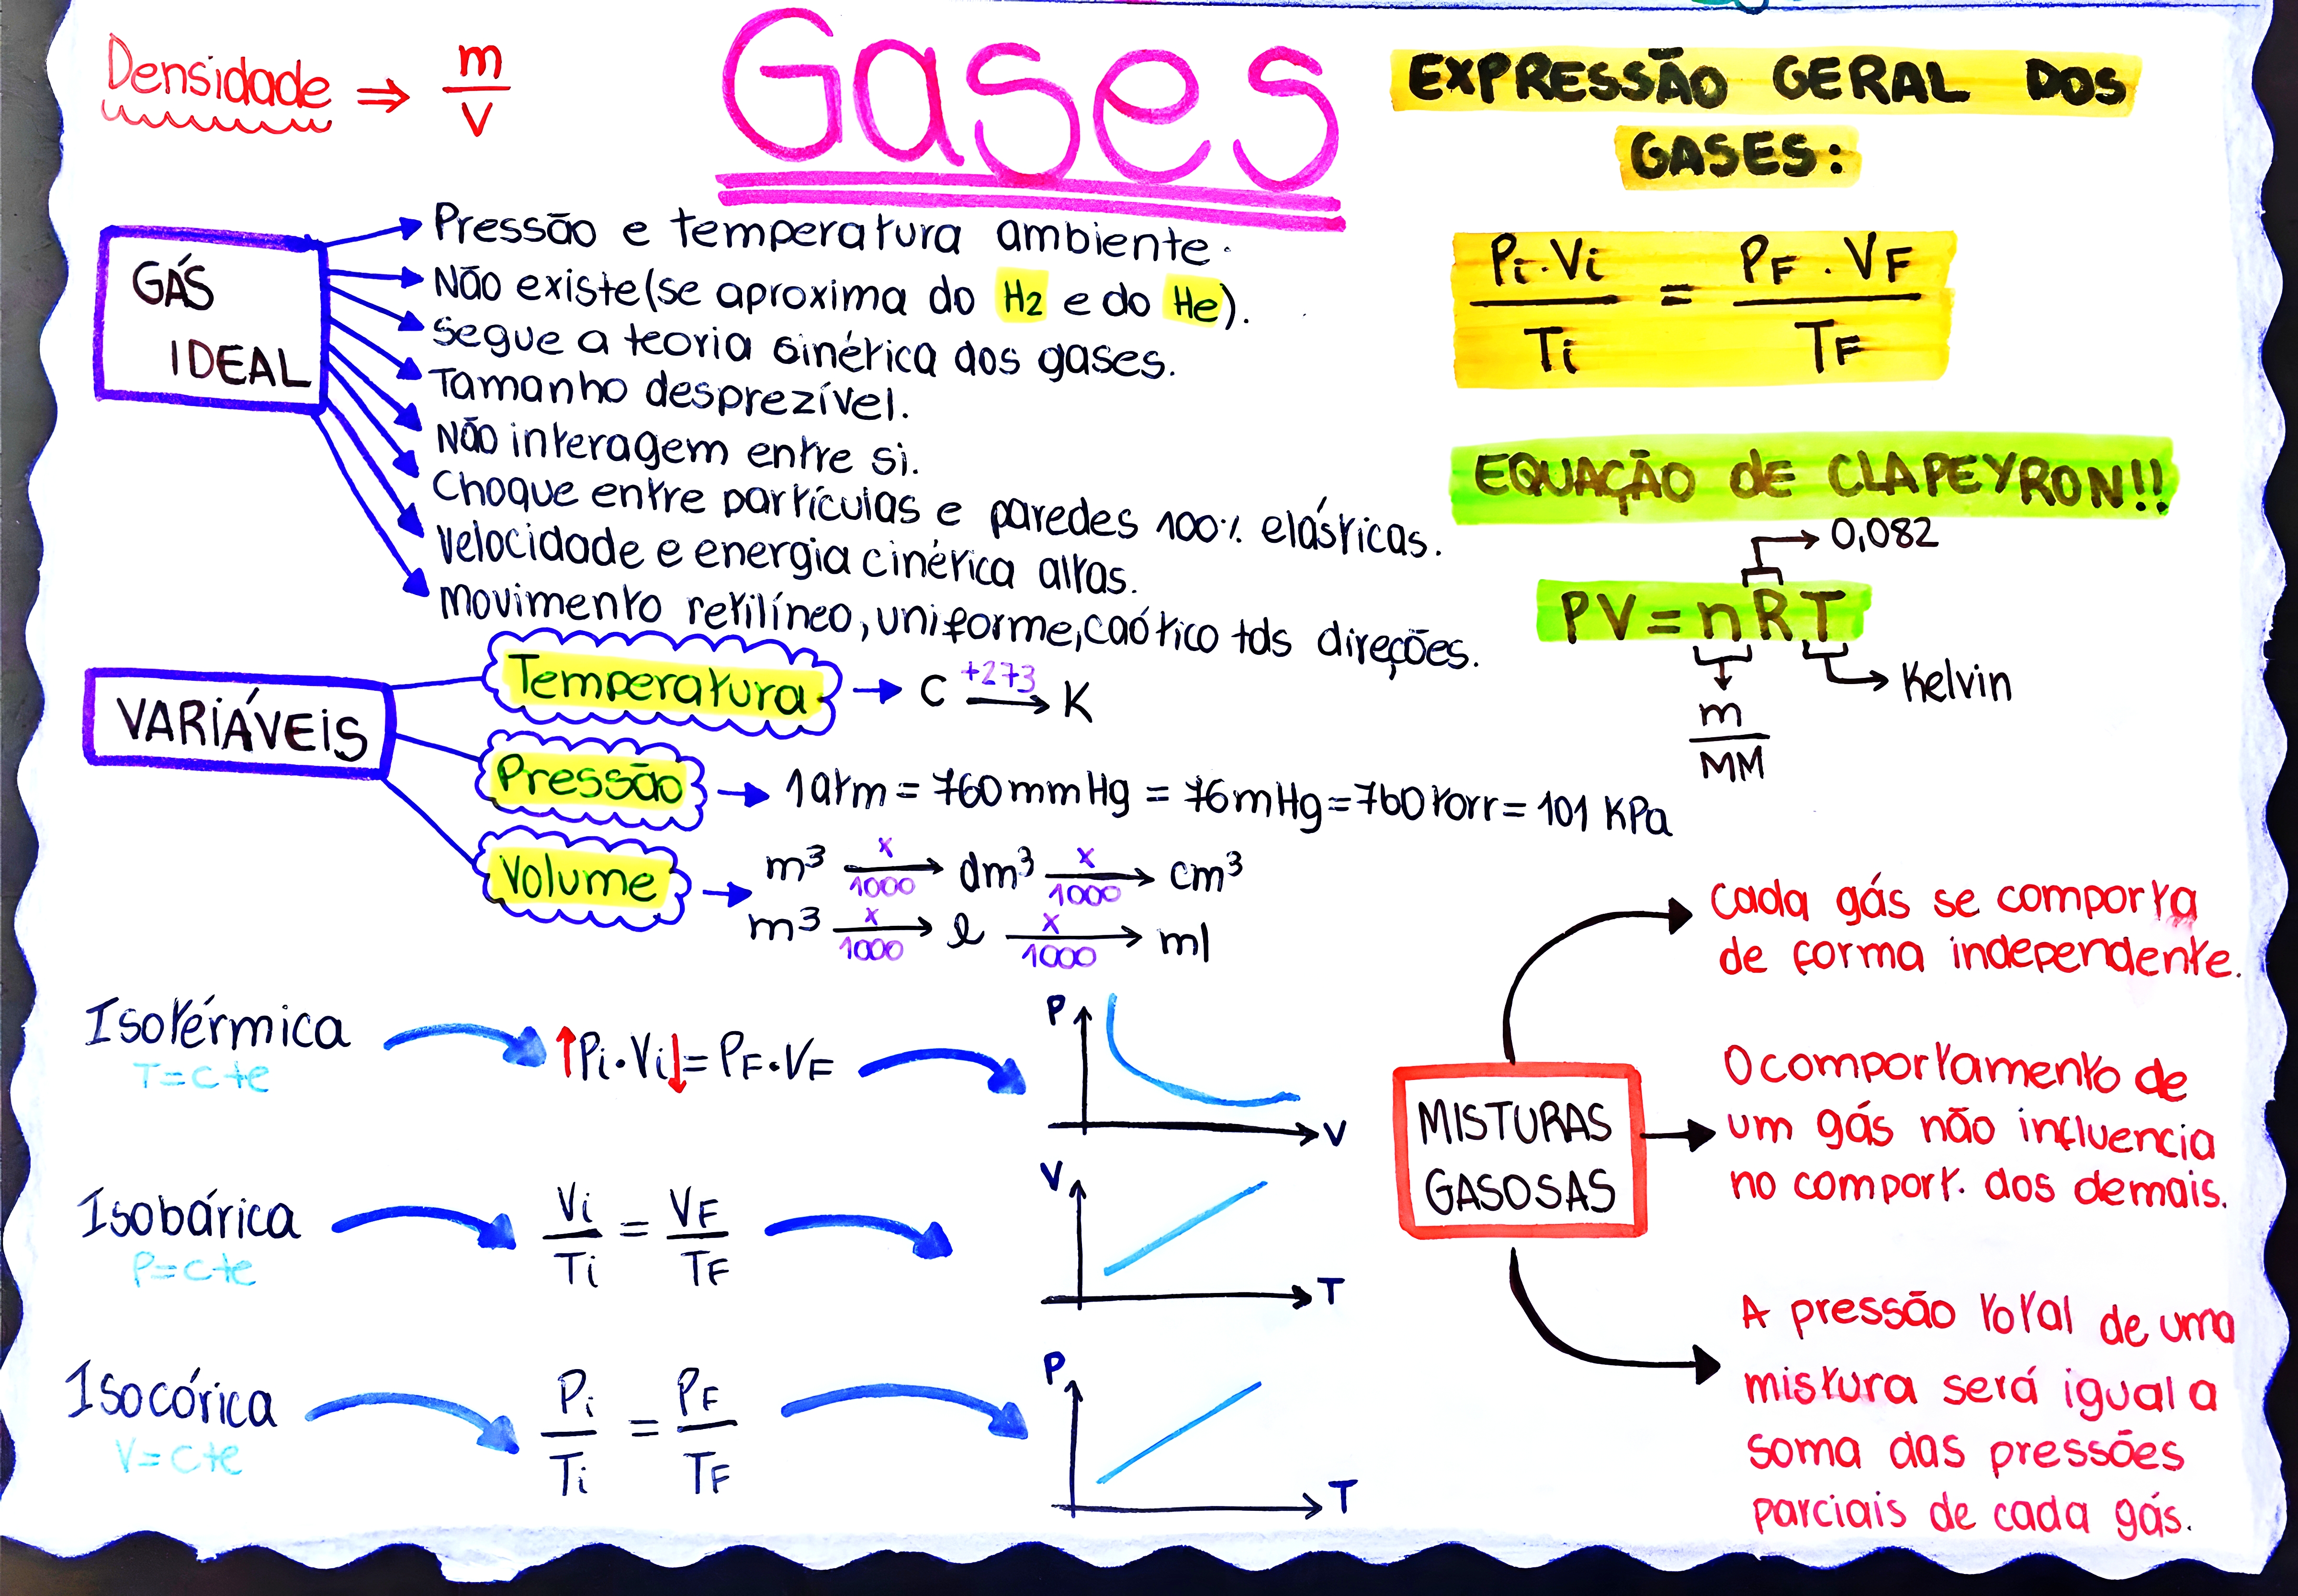 Densidade ⇒ m/V
Gases
EXPRESSÃO GERAL DOS
GASES:
Pi.Vi/Ti = PF.VF/TF
GÁS
IDEAL
Pressão e temperatura ambiente.
Não existe (se aproxima do H2 e do He).
Segue a teoria cinética dos gases.
Tamanho desprezível.
Não interagem entre si.
Choque entre partículas e paredes 100% elásticas.
Velocidade e energia cinética altas.
Movimento retilíneo, uniforme, caótico tds direções.
EQUAÇÃO de CLAPEYRON!!
0,082
PV = nRT
Kelvin
m/MM
VARIÁVEIS
Temperatura → C +273 → K
Pressão → 1atm = 760 mmHg = 76 mHg = 760 torr = 101 KPa
Volume → m³ x 1000 → dm³ x 1000 → cm³
m³ x 1000 → l x 1000 → ml
Isotérmica
T=cte
↑Pi.Vi↓ = PF.VF
P
V
Isobárica
P=cte
Vi/Ti = VF/TF
V
T
Isocórica
V=cte
Pi/Ti = PF/TF
P
T
MISTURAS
GASOSAS
Cada gás se comporta
de forma independente.
O comportamento de
um gás não influencia
no comport. dos demais.
A pressão total de uma
mistura será igual a
soma das pressões
parciais de cada gás.